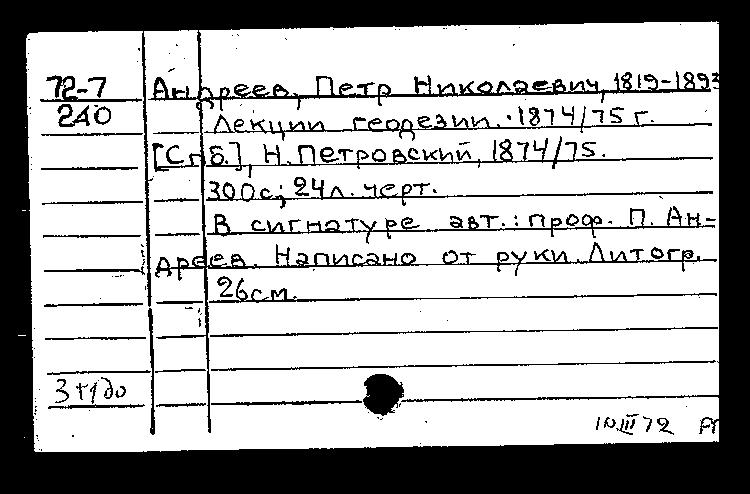 72-7 Андреев, Петр Николаевич, 1819-1893
240 Лекции геодезии. 1874/75 г.
[Спб.], Н. Петровский, 1874/75.
300 с; 24 л. черт.
В сигнатуре авт.: проф. П. Ан-
дреев. Написано от руки. Литогр.
26 см.
10.III 72